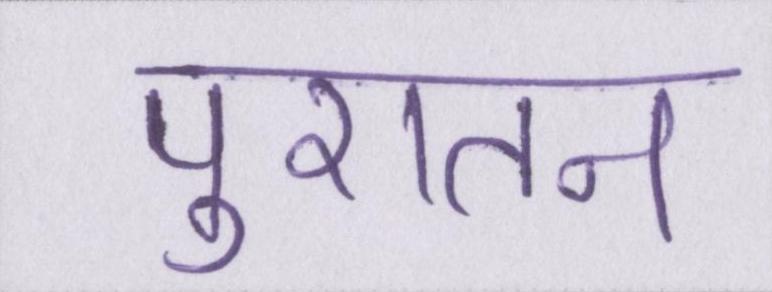 पुरातन